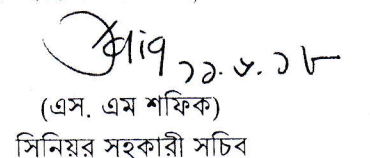 ১১.৬.১৮
(এস. এম শফিক)
সিনিয়র সহকারী সচিব